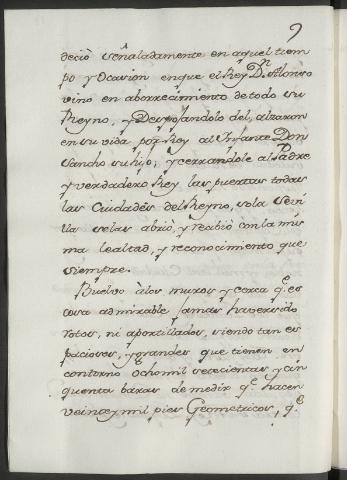 9
deciò señaladamente en aquel tiem
po y Ocasion enque el Rey Dn. Alonso
vino en aborrecimiento de todo su
Reyno, y Despojandolo del, alzaron
en su vida por Rey al Infante Don
Sancho su hijo, y cerrandole al Padre
y verdadero Rey las puertas todas
las Ciudades del Reyno, sola Sevi
lla selas abriò, y recibiò con la mis
ma lealtad, y reconocimiento que
siempre.
Buelvo à los muros y cerca qe. es
cosa admirable Jamas haver sido
rotos, ni aportillados, siendo tan es
paciosos, y grandes que tienen en
contorno ocho mil setecientas y cin
quenta baras de medir qe. hacen
veinte y mil pies Geometricos, qe.